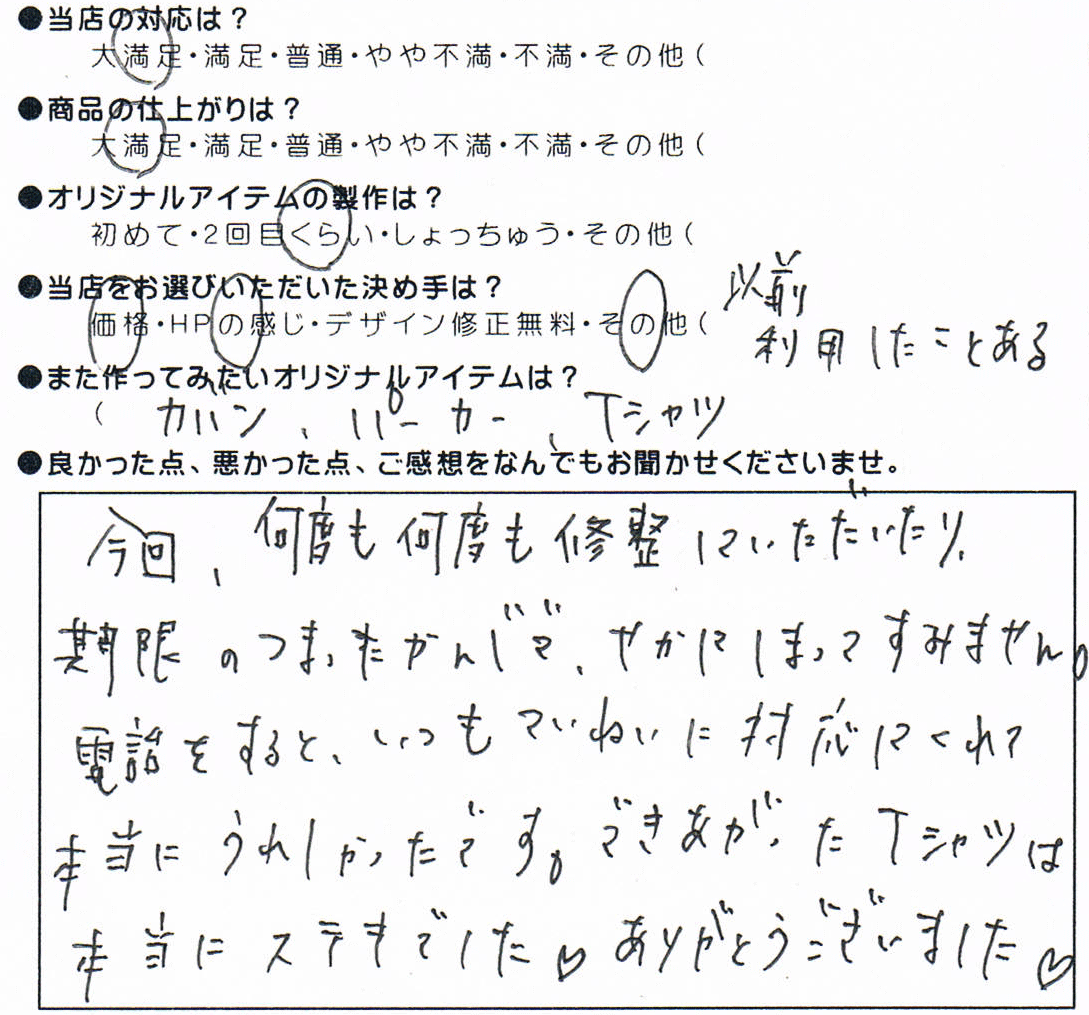 ●当店の対応は？
大満足・満足・普通・やや不満・不満・その他（
●商品の仕上がりは？
大満足・満足・普通・やや不満・不満・その他（
●オリジナルアイテムの製作は？
初めて・2回目くらい・しょっちゅう・その他（
●当店をお選びいただいた決め手は？
価格・HPの感じ・デザイン修正無料・その他（
以前
利用したことある
●また作ってみたいオリジナルアイテムは？
（ カバン、パーカー、Tシャツ
●良かった点、悪かった点、ご感想をなんでもお聞かせくださいませ。
今回、何度も何度も修整していただいたり、
期限のつまったかんじで、せかしてしまってすみません。
電話をすると、いつもていねいに対応してくれて
本当にうれしかったです。できあがったTシャツは
本当にステキでした♡ありがとうございました♡